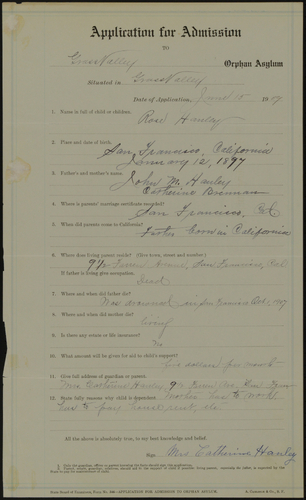 Application for Admission
TO
Grass Valley Orphan Asylum
Situated in Grass Valley
Date of Application, June 15 1909
1. Name in full of child or children.
Rose Hanley
2. Place and date of birth.
San Francisco, California
January 12, 1897
3. Father's and mother's name.
John M. Hanley
Catherine
4. Where is parents' marriage certificate recorded?
San Francisco, Cal
5. When did parents come to California?
Father born in California
6. Where does family reside? (Give town, street and number)
Avenue, San Francisco, Cal
If father is living give occupation.
Dead
7. Where and when did father die?
Was drowned in San Francisco Oct.
8. Where and when did mother die?
living
9. Is there any estate or life insurance?
No
10. What amount will be given for aid in child's support?
five dollars per month
11. Give full address of guardian or parent.
Mrs Catherine Hanley, San Fran
12. State fully reasons why child is dependent. Mother has to work
has to pay rent, etc
All the above is absolutely true, to my best knowledge and belief.
Sign. Mrs Catherine Hanley
APPLICATION FOR ADMISSION TO ORPHAN ASYLUM.